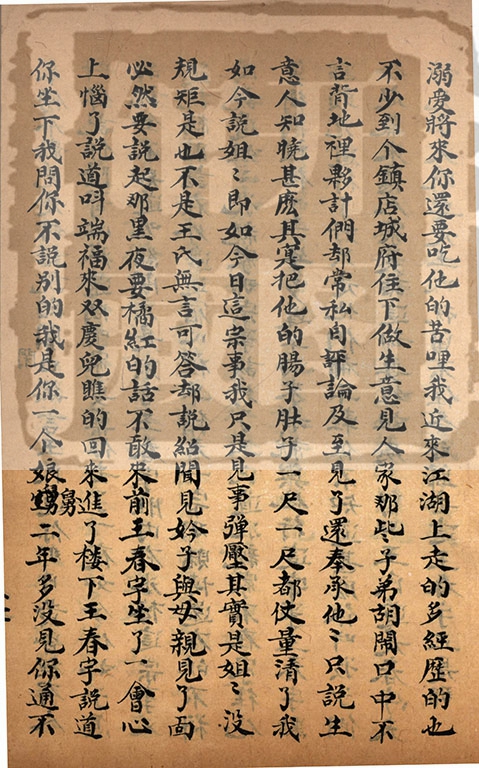 溺愛將來你還要吃他的苦哩我近來江湖上走的多經歷的也
不少到个鎮店城府住下做生意見人家那些子弟胡鬧口中不
言背地裡夥計們却常私自評論及至見了還奉承他〻只說生
意人知曉甚麽其寔把他的腸子肚子一尺一尺都仗量清了我
如今說姐〻即如今日這宗事我只是見事彈壓其實是姐〻没
規矩是也不是王氏無言可答却說紹聞見妗子與母親見了面
必然要說起那黑夜要橘紅的話不敢来前王春宇坐了一會心
上惱了說道呌端福來双慶兒瞧的回来進了楼下王春宇說道
你坐下我問你不說別的我是你一个娘舅二年多没見你通不